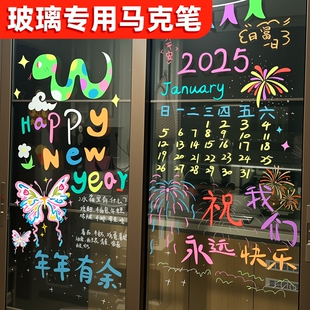 玻璃专用马克笔
Happy
New
year
年年有余
平安
日富一日
2025
January
日 一 二 三 四 五 六
1 2 3 4
5 6 7 8 9 10 11
12 13 14 15 16 17 18
19 20 21 22 23 24 25
26 27 28 29 30 31
祝我们
永远快乐